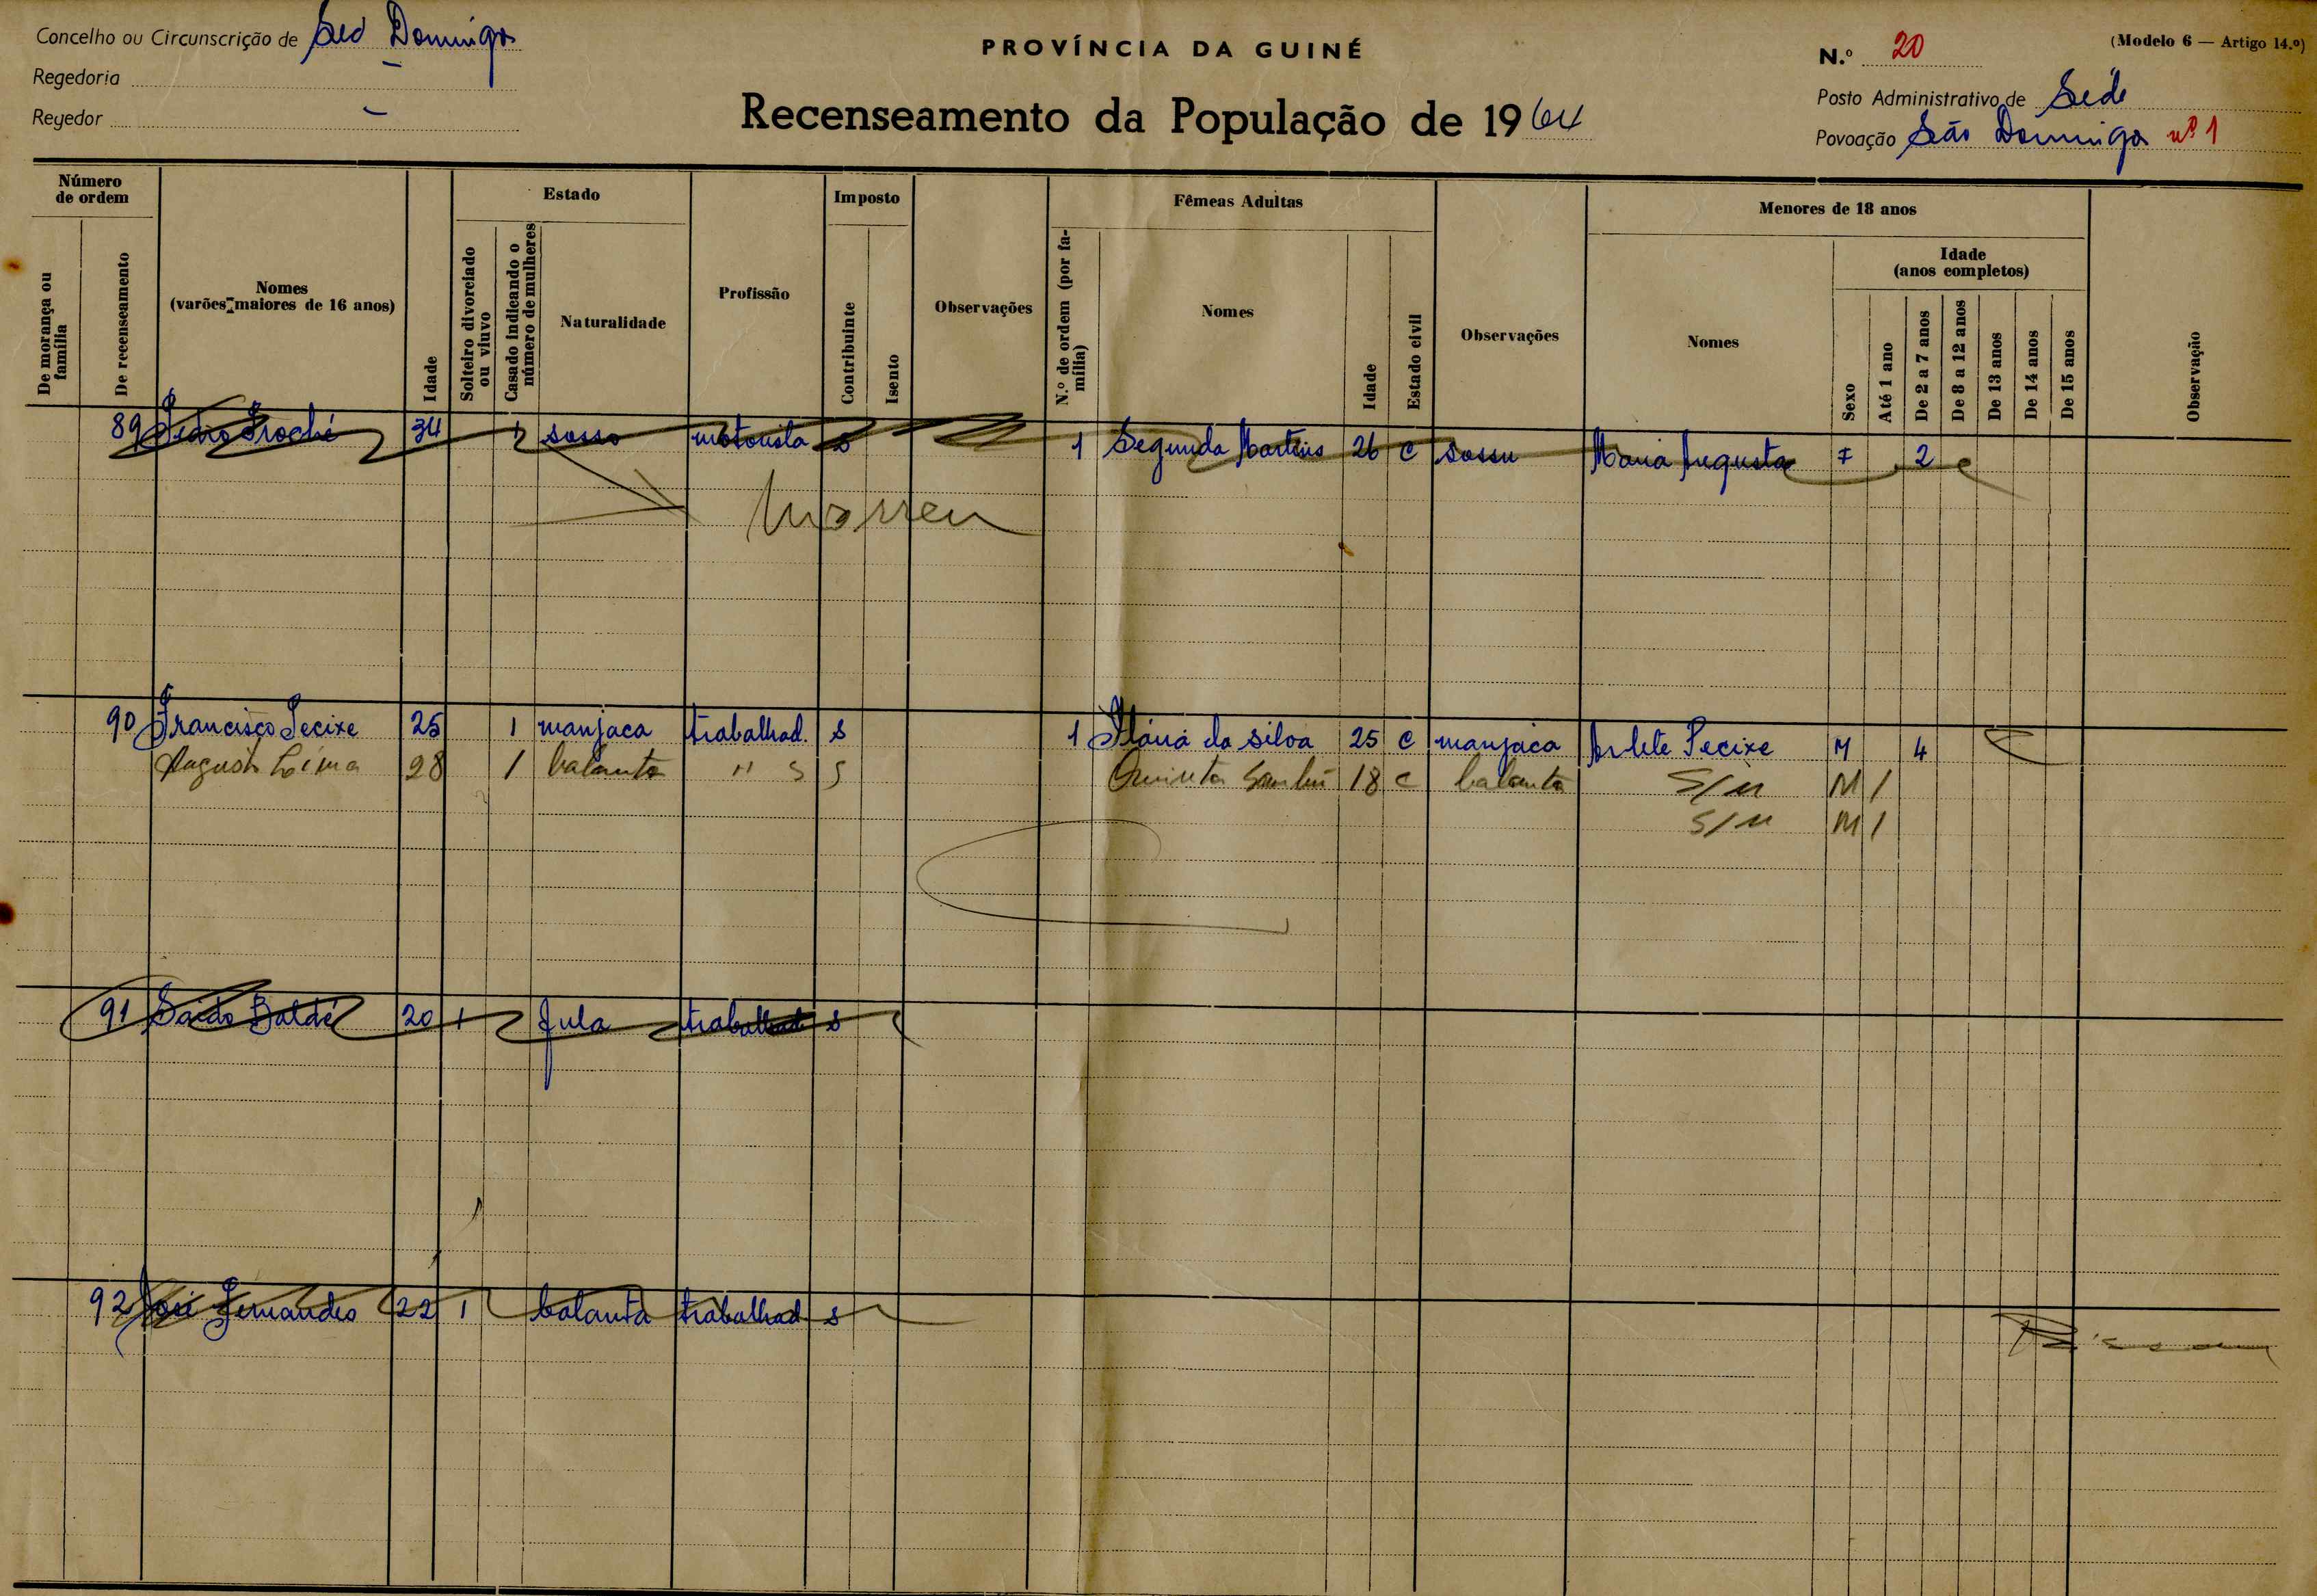 Concelho ou Circunscrição de São Domingos
PROVÍNCIA DA GUINÉ
N.º 20
(Modelo 6 — Artigo 14.º)
Regedoria –
Posto Administrativo de Sede
Regedor –
Recenseamento da População de 1964
Povoação São Domingos nº 1
Número de ordem
De morança ou família
De recenseamento
Nomes (varões maiores de 16 anos)
Idade
Estado
Solteiro divorciado ou viuvo
Casado indicando o número de mulheres
Naturalidade
Profissão
Imposto
Contribuinte
Isento
Observações
Fêmeas Adultas
N.º de ordem (por família)
Nomes
Idade
Estado civil
Observações
Menores de 18 anos
Nomes
Sexo
Idade (anos completos)
Até 1 ano
De 2 a 7 anos
De 8 a 12 anos
De 13 anos
De 14 anos
De 15 anos
Observação
89 34 1 sosso motorista s 1 Segunda Martins 26 c sossu Maria Augusta F 2
Morreu
90 Francisco Pecixe 25 1 manjaca trabalhad. s 1 da silva 25 c manjaca Arlete Pecixe M 4
Augusto 28 1 balanta " s s Quinta 18 c balanta S/n M 1
S/n M 1
91 Saido Baldé 20 1 fula trabalhad. s
92 José Fernandes 22 1 balanta trabalhad. s